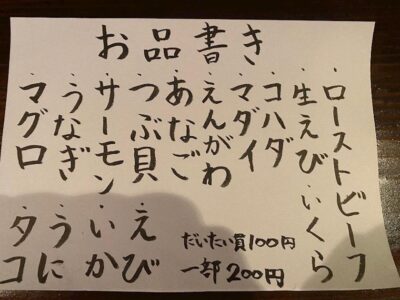 お品書き
・ローストビーフ
・生えび
・いくら
・コハダ
・マダイ
・えんがわ
・あなご
・つぶ貝
・サーモン
・うなぎ
・マグロ
えび
いか
うに
タコ
だいたい貫100円
一部200円